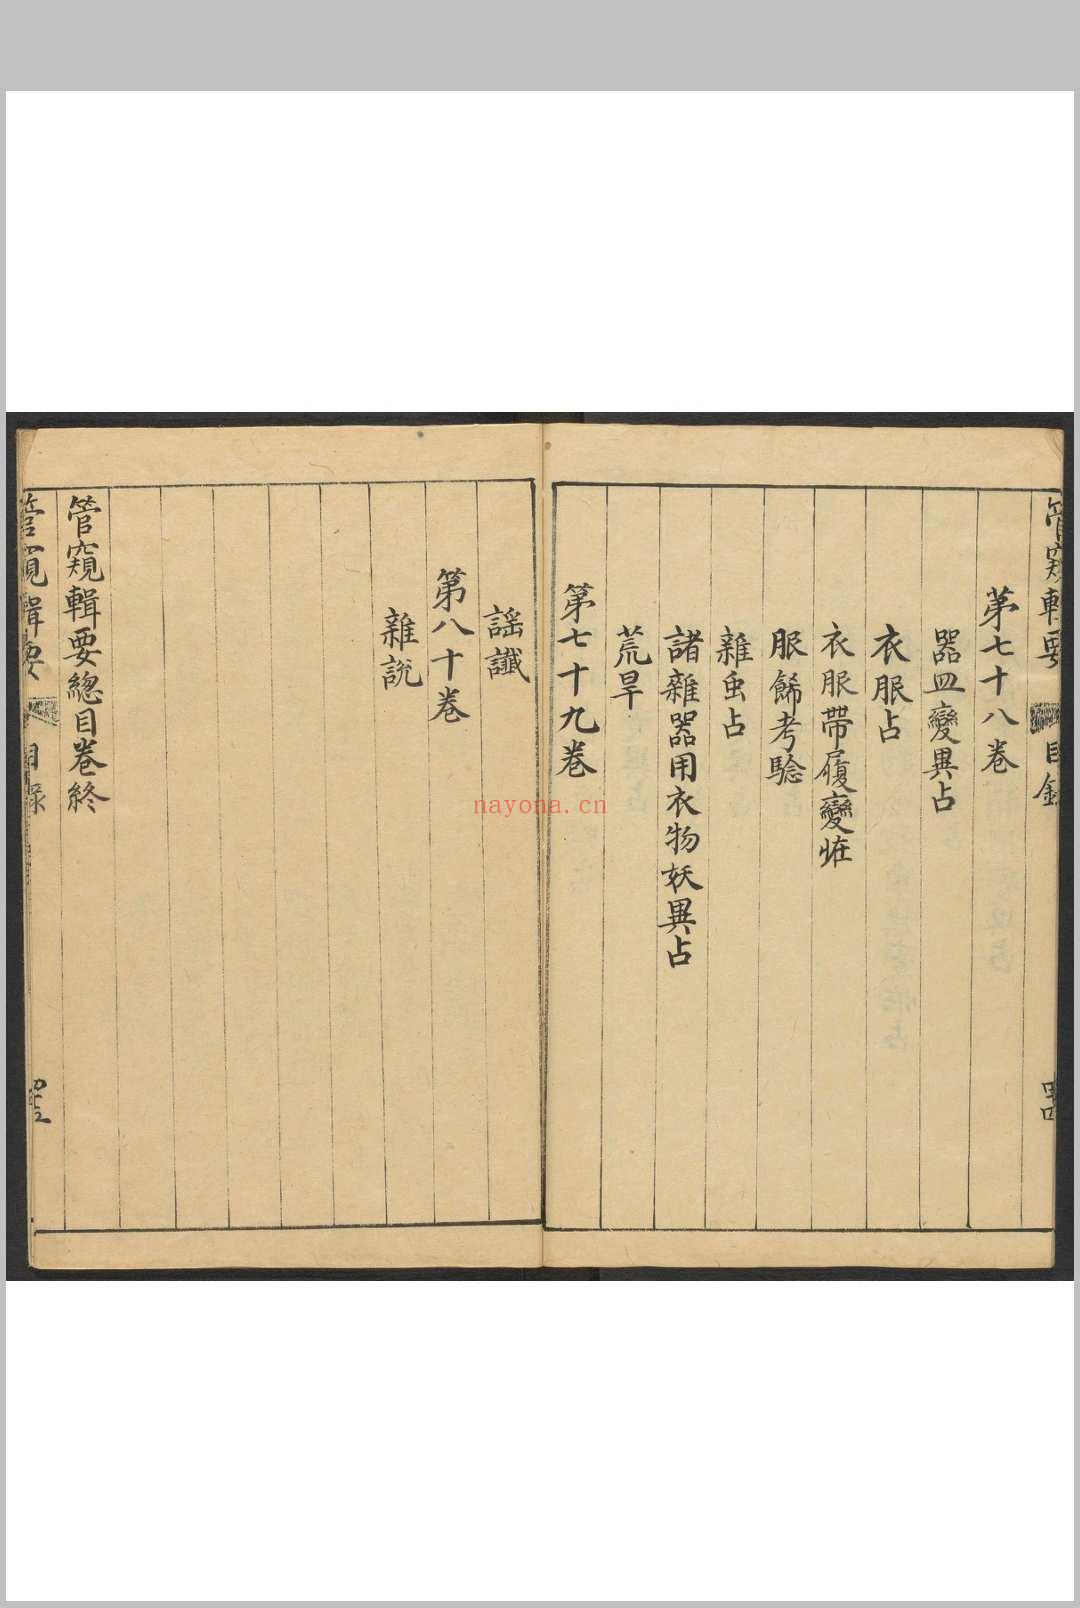 管窺輯要 目錄
第七十八卷
器皿變異占
衣服占
衣服帶履變怪
服餙考騐
雜虫占
諸雜器用衣物妖異占
荒旱
第七十九卷
謠讖
第八十卷
雜說
管窺輯要總目卷終
管窺輯要 目錄
nayona.cn